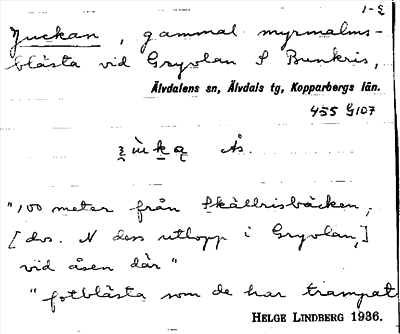 1-ε
Juckan, gammal myrmalms-
blästa vid Gryvlan S Bunkris,
Älvdalens sn, Älvdals tg, Kopparbergs län.
455 G107
Ås.
"100 meter från Skällrisbäcken,
[dvs. N dess utlopp i Gryvlan,]
vid åsen där"
"fotblästa som de har trampat
HELGE LINDBERG 1936.